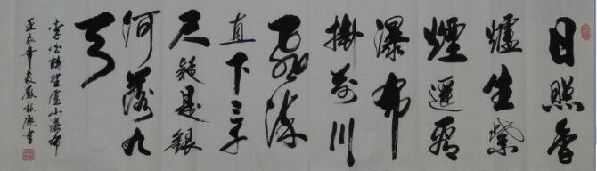 日照香
爐生紫
煙遙看
瀑布
掛前川
飛流
直下三千
尺疑是銀
河落九
天
李白詩望廬山瀑布
書